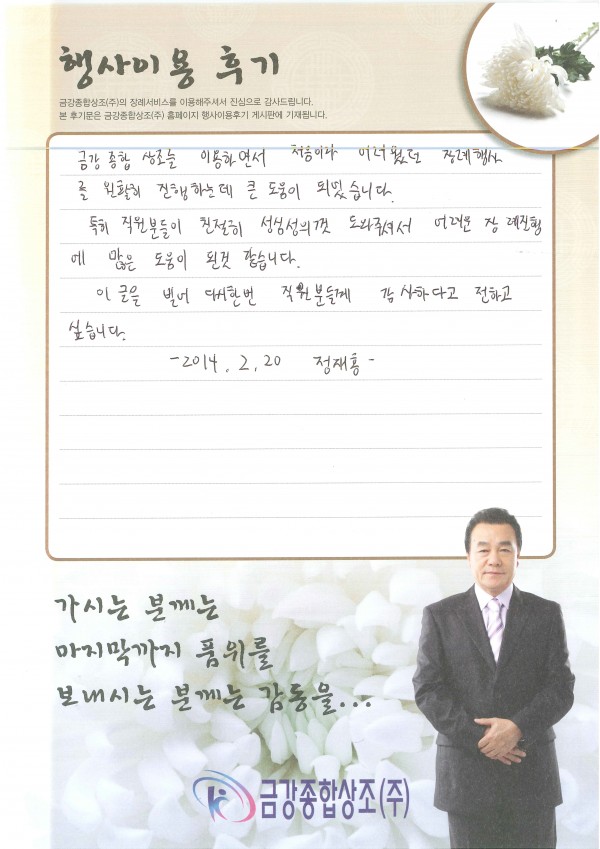 행사이용 후기
금강종합상조(주)의 장례서비스를 이용해주셔서 진심으로 감사드립니다.
본 후기문은 금강종합상조(주) 홈페이지 행사이용후기 게시판에 기재됩니다.
금강 종합 상조를 이용하면서 처음이라 어려웠던 장례행사
를 원활히 진행하는데 큰 도움이 되었습니다.
특히 직원분들이 친절히 성심성의껏 도와주셔서 어려운 장례진행
에 많은 도움이 된것 같습니다.
이 글을 빌어 다시한번 직원분들께 감사하다고 전하고
싶습니다.
-2014. 2. 20 정재홍-
가시는 분께는
마지막까지 품위를
보내시는 분께는 감동을...
금강종합상조(주)